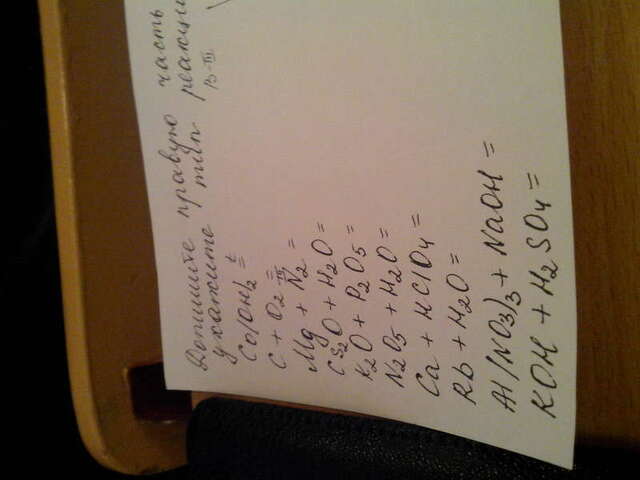 Допишите правую часть
укажите тип реакции
Co(OH)2 t=
C + O2 =
Mg + N2 =
Cs2O + H2O =
K2O + P2O5 =
N2O5 + H2O =
Ca + HClO4 =
Rb + H2O =
Al(NO3)3 + NaOH =
KOH + H2SO4 =